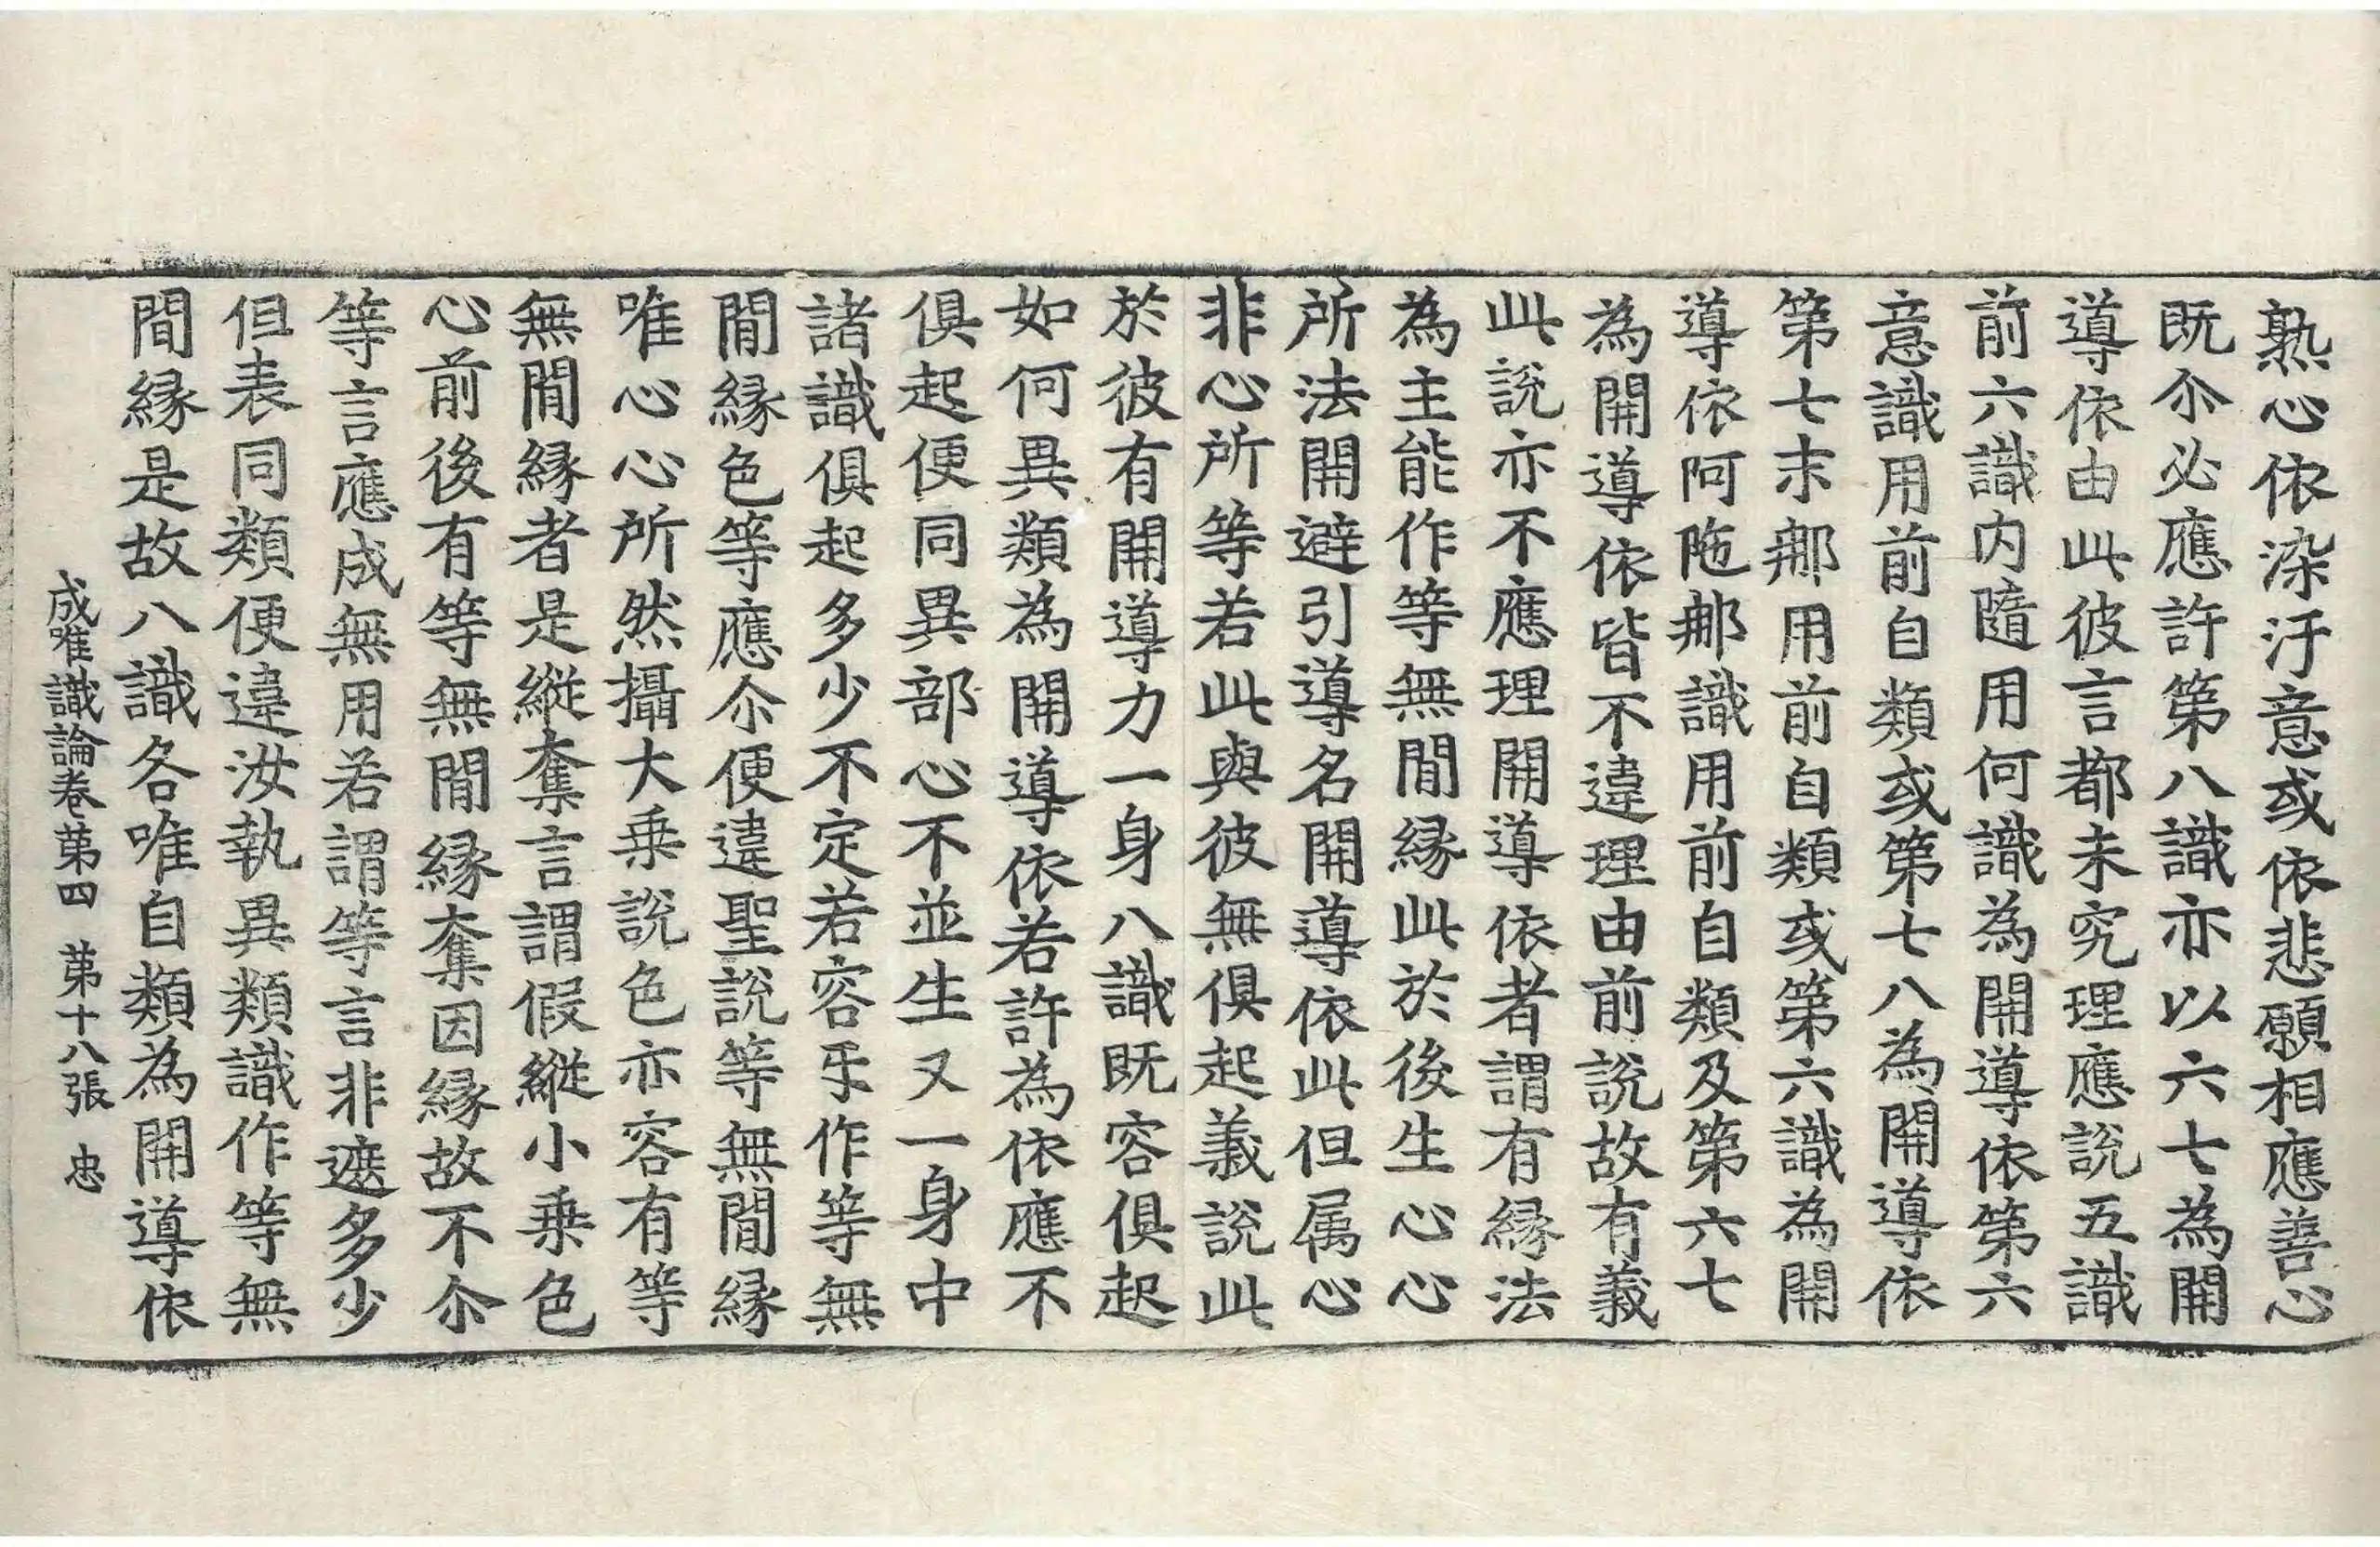 熟心依染汙意或依悲願相應善心
既尒必應許第八識亦以六七為開
導依由此彼言都未究理應說五識
前六識内隨用何識為開導依第六
意識用前自類或第七八為開導依
第七末那用前自類或第六識為開
導依阿陁那識用前自類及第六七
為開導依皆不違理由前說故有義
此說亦不應理開導依者謂有縁法
為主能作等無間縁此於後生心心
所法開避引導名開導依此但属心
非心所等若此與彼無俱起義說此
於彼有開導力一身八識既容俱起
如何異類為開導依若許為依應不
俱起便同異部心不並生又一身中
諸識俱起多少不定若容㸦作等無
間縁色等應尒便違聖說等無間縁
唯心心所然攝大乗說色亦容有等
無間縁者是縱奪言謂假縱小乗色
心前後有等無間縁奪因縁故不尒
等言應成無用若謂等言非遮多少
但表同類便違汝執異類識作等無
間縁是故八識各唯自類為開導依
成唯識論卷苐四 苐十八張 忠